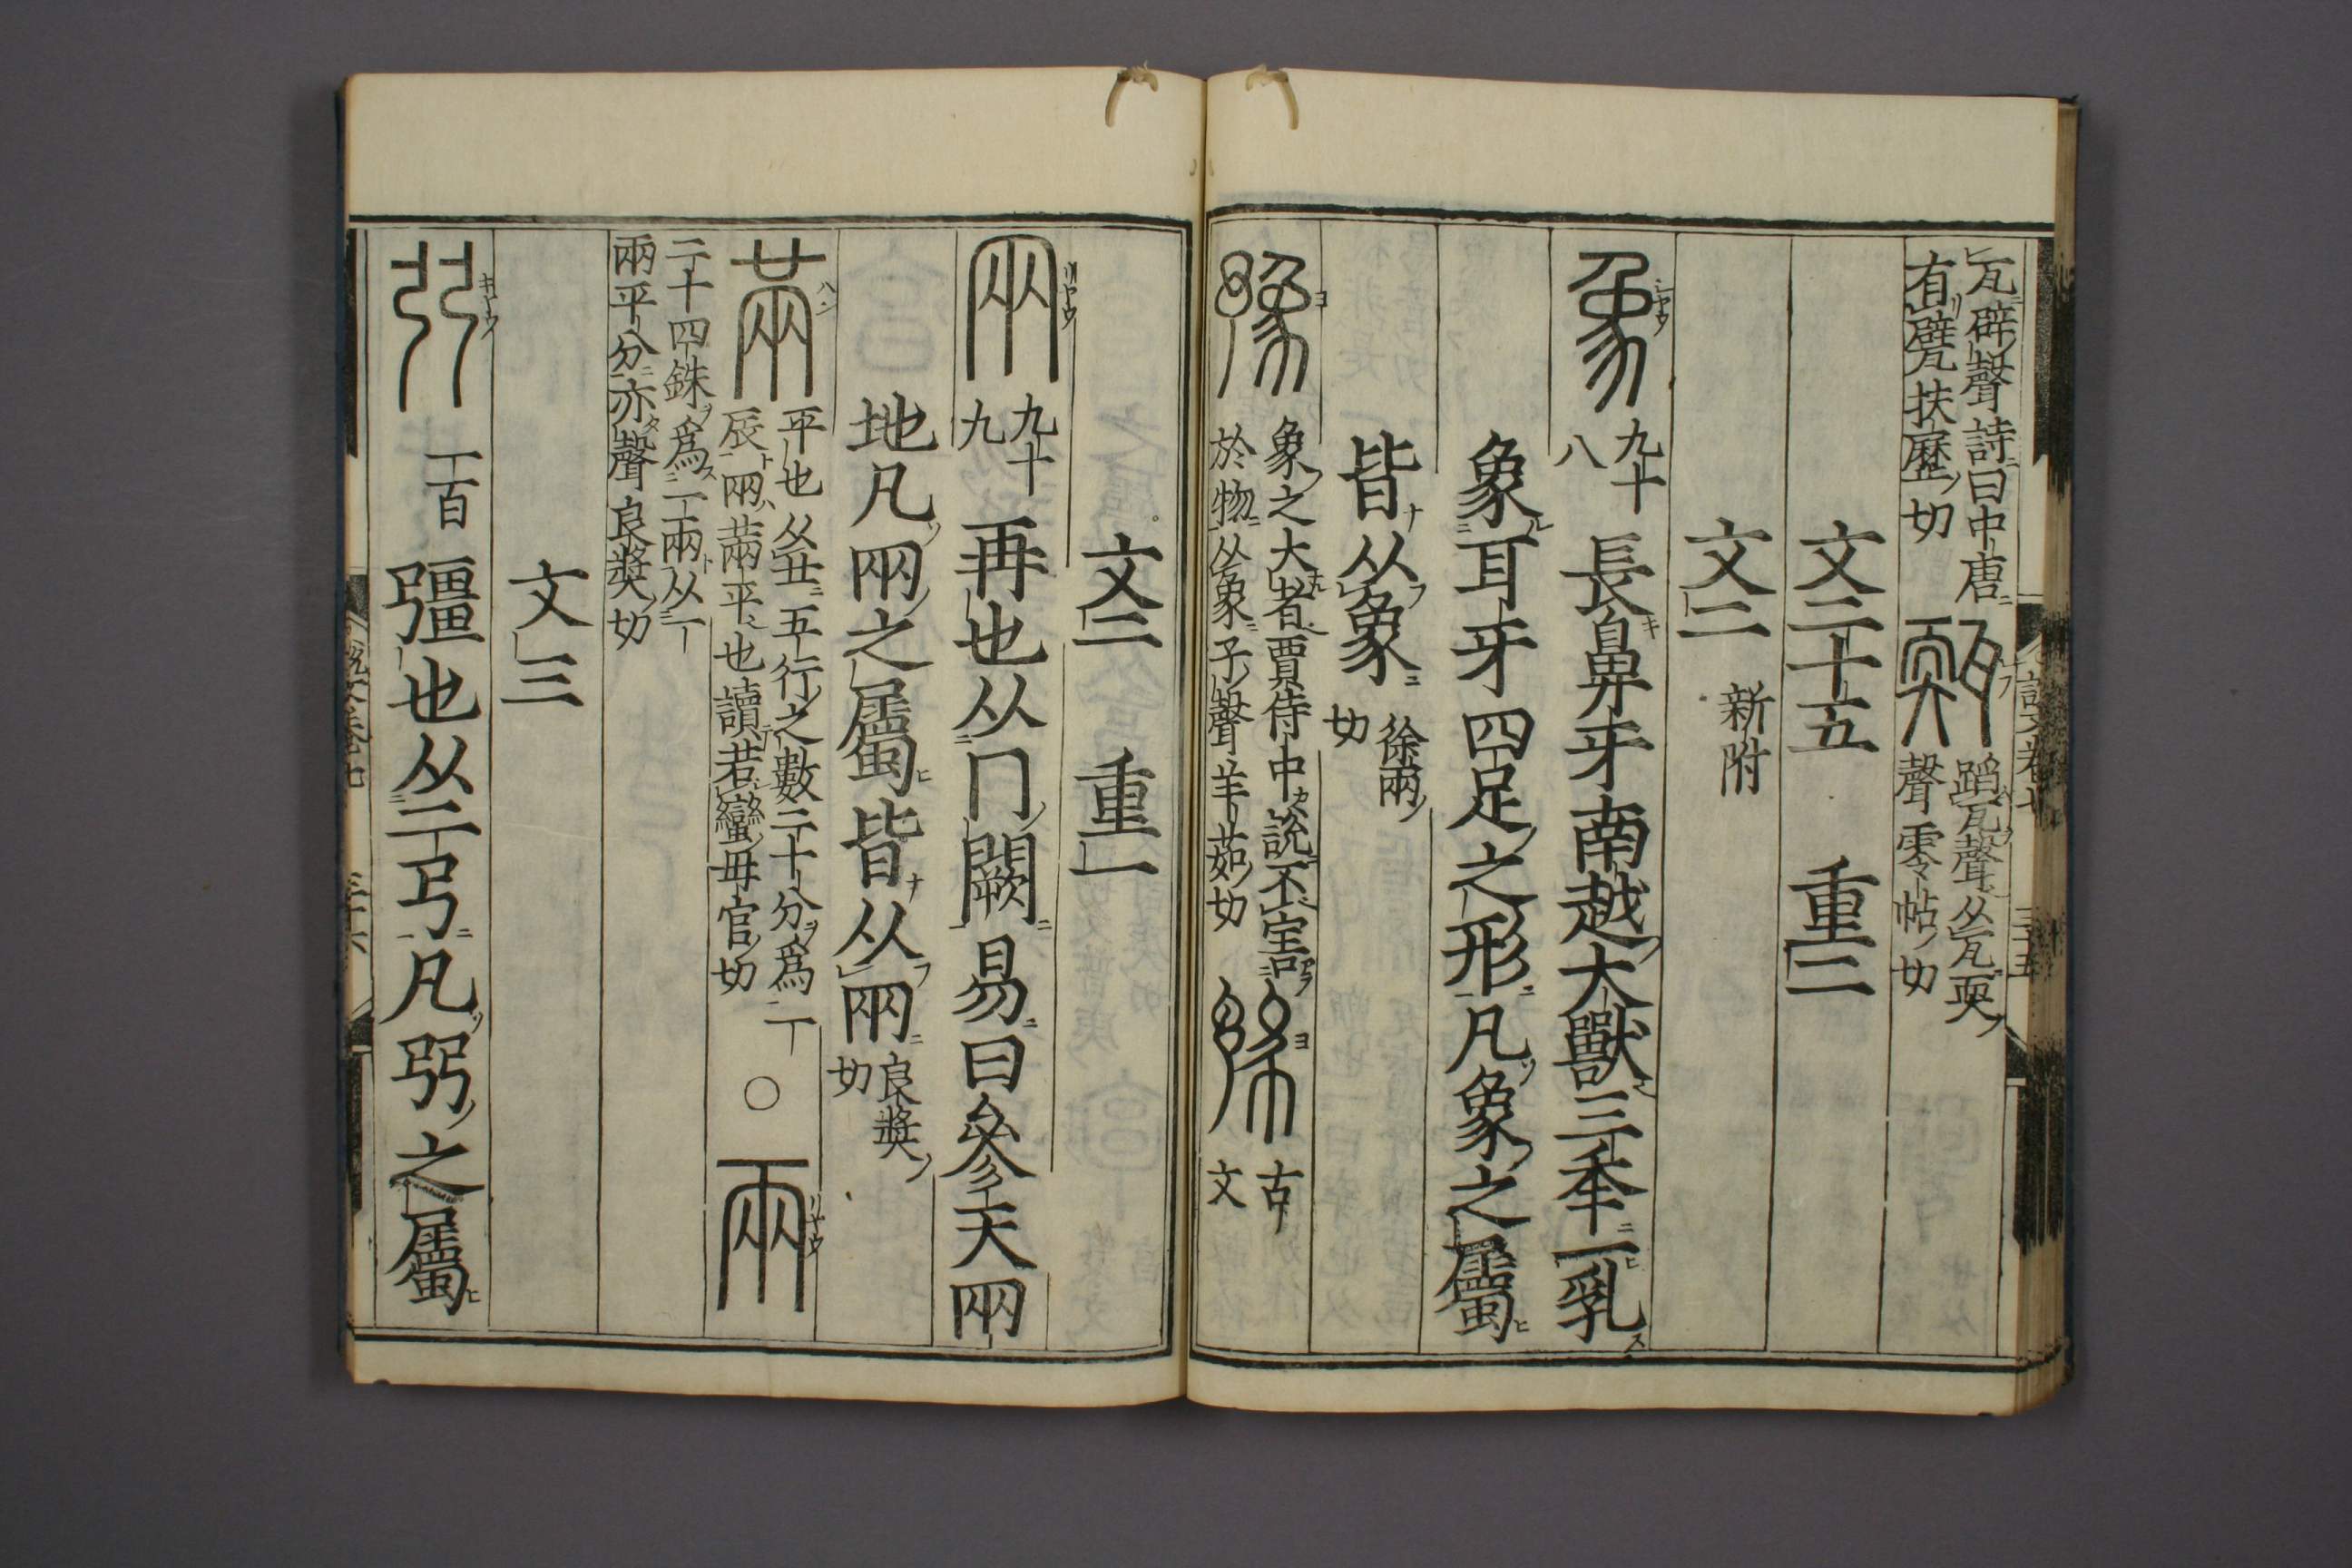 瓦辟聲詩曰中唐
有甓扶歷切
蹈瓦聲从瓦耎
聲零帖切
文二十五 重二
文二 新附
象 九十八 長鼻牙南越大獸三秊一乳
象耳牙四足之形凡象之屬
皆从象 徐兩切
豫 象之大者賈侍中說不害
於物从象予聲羊茹切
古文
文二 重一
㒳 九十九 再也从冂闕易曰參天㒳
地凡㒳之屬皆从㒳 良獎切
㒼 平也从廿五行之數二十分爲一
辰㒳㒼平也讀若蠻毋官切
○
兩
二十四銖爲一兩从一
㒳平分亦聲良獎切
文三
弜 一百 彊也从二弓凡弜之屬
說文卷七 三十五
說文卷七 三十六